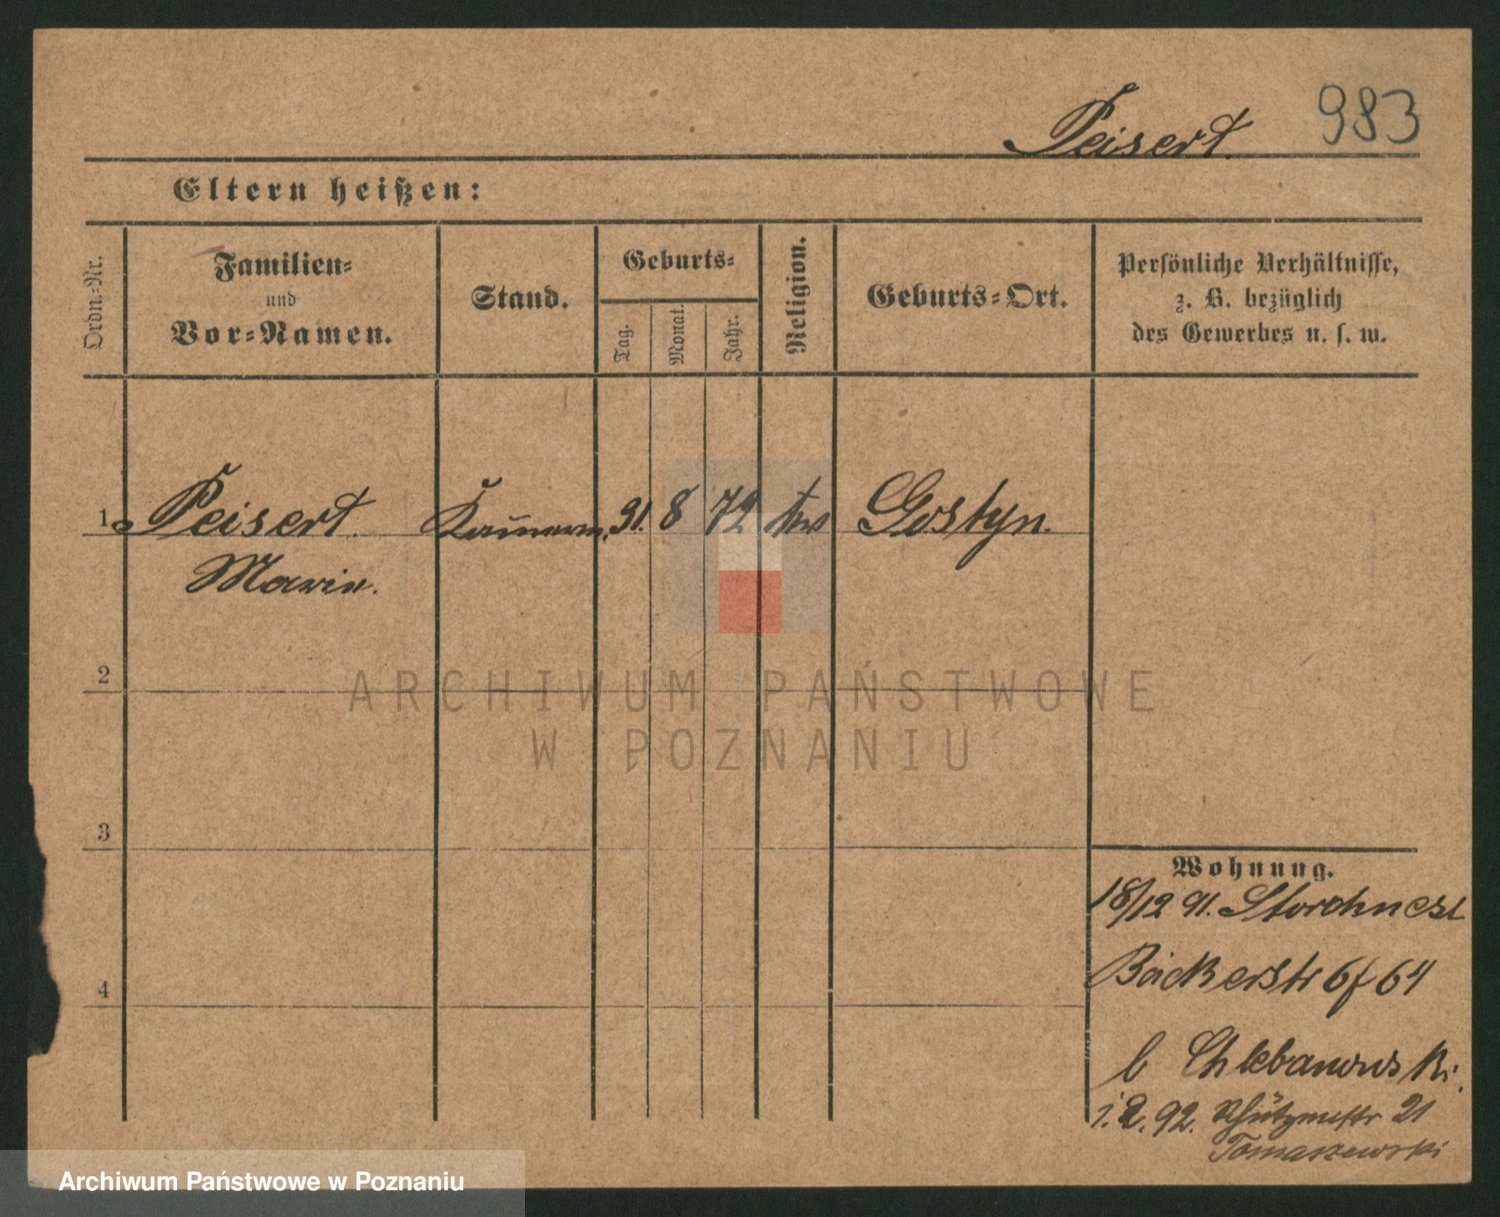 Peisert. 983
Eltern heißen:
Ordn.-Nr.
Familien-
und
Vor-Namen.
Stand.
Geburts-
Tag.
Monat.
Jahr.
Religion.
Geburts-Ort.
Persönliche Verhältnisse,
z. B. bezüglich
des Gewerbes u. s. w.
1 Peisert 31. 8 72 Gostyn.
Marie.
2
3
4
Wohnung.
18/12 91. Storchnest
Bäckerstr 64
b Chlebanowski.
1.2.92. Schützenstr 21
Tomaszewski
ARCHIWUM PAŃSTWOWE
W POZNANIU
Archiwum Państwowe w Poznaniu